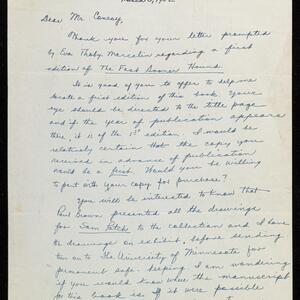 Dear Mr. Conroy,
Thank you for your letter prompted
by Eva Thoby-Marcelin regarding a first
edition of The Fast Sooner Hound.
It is good of you to offer to help me
locate a first edition of this book. Your
eye should be directed to the title page
and if the year of publication appears
there, it is of the 1st edition. I would be
relatively certain that the copy you
received in advance of publication
would be a first. Would you be willing
to part with your copy for purchase?
You will be interested to know that
Paul Brown presented all the drawings
for Sam Patch to the collection and I have
the drawings on exhibit, before sending
them on to the University of Minnesota for
permanent safe keeping. I am wondering
if you would know where the manuscript
for this book is. If it were possible